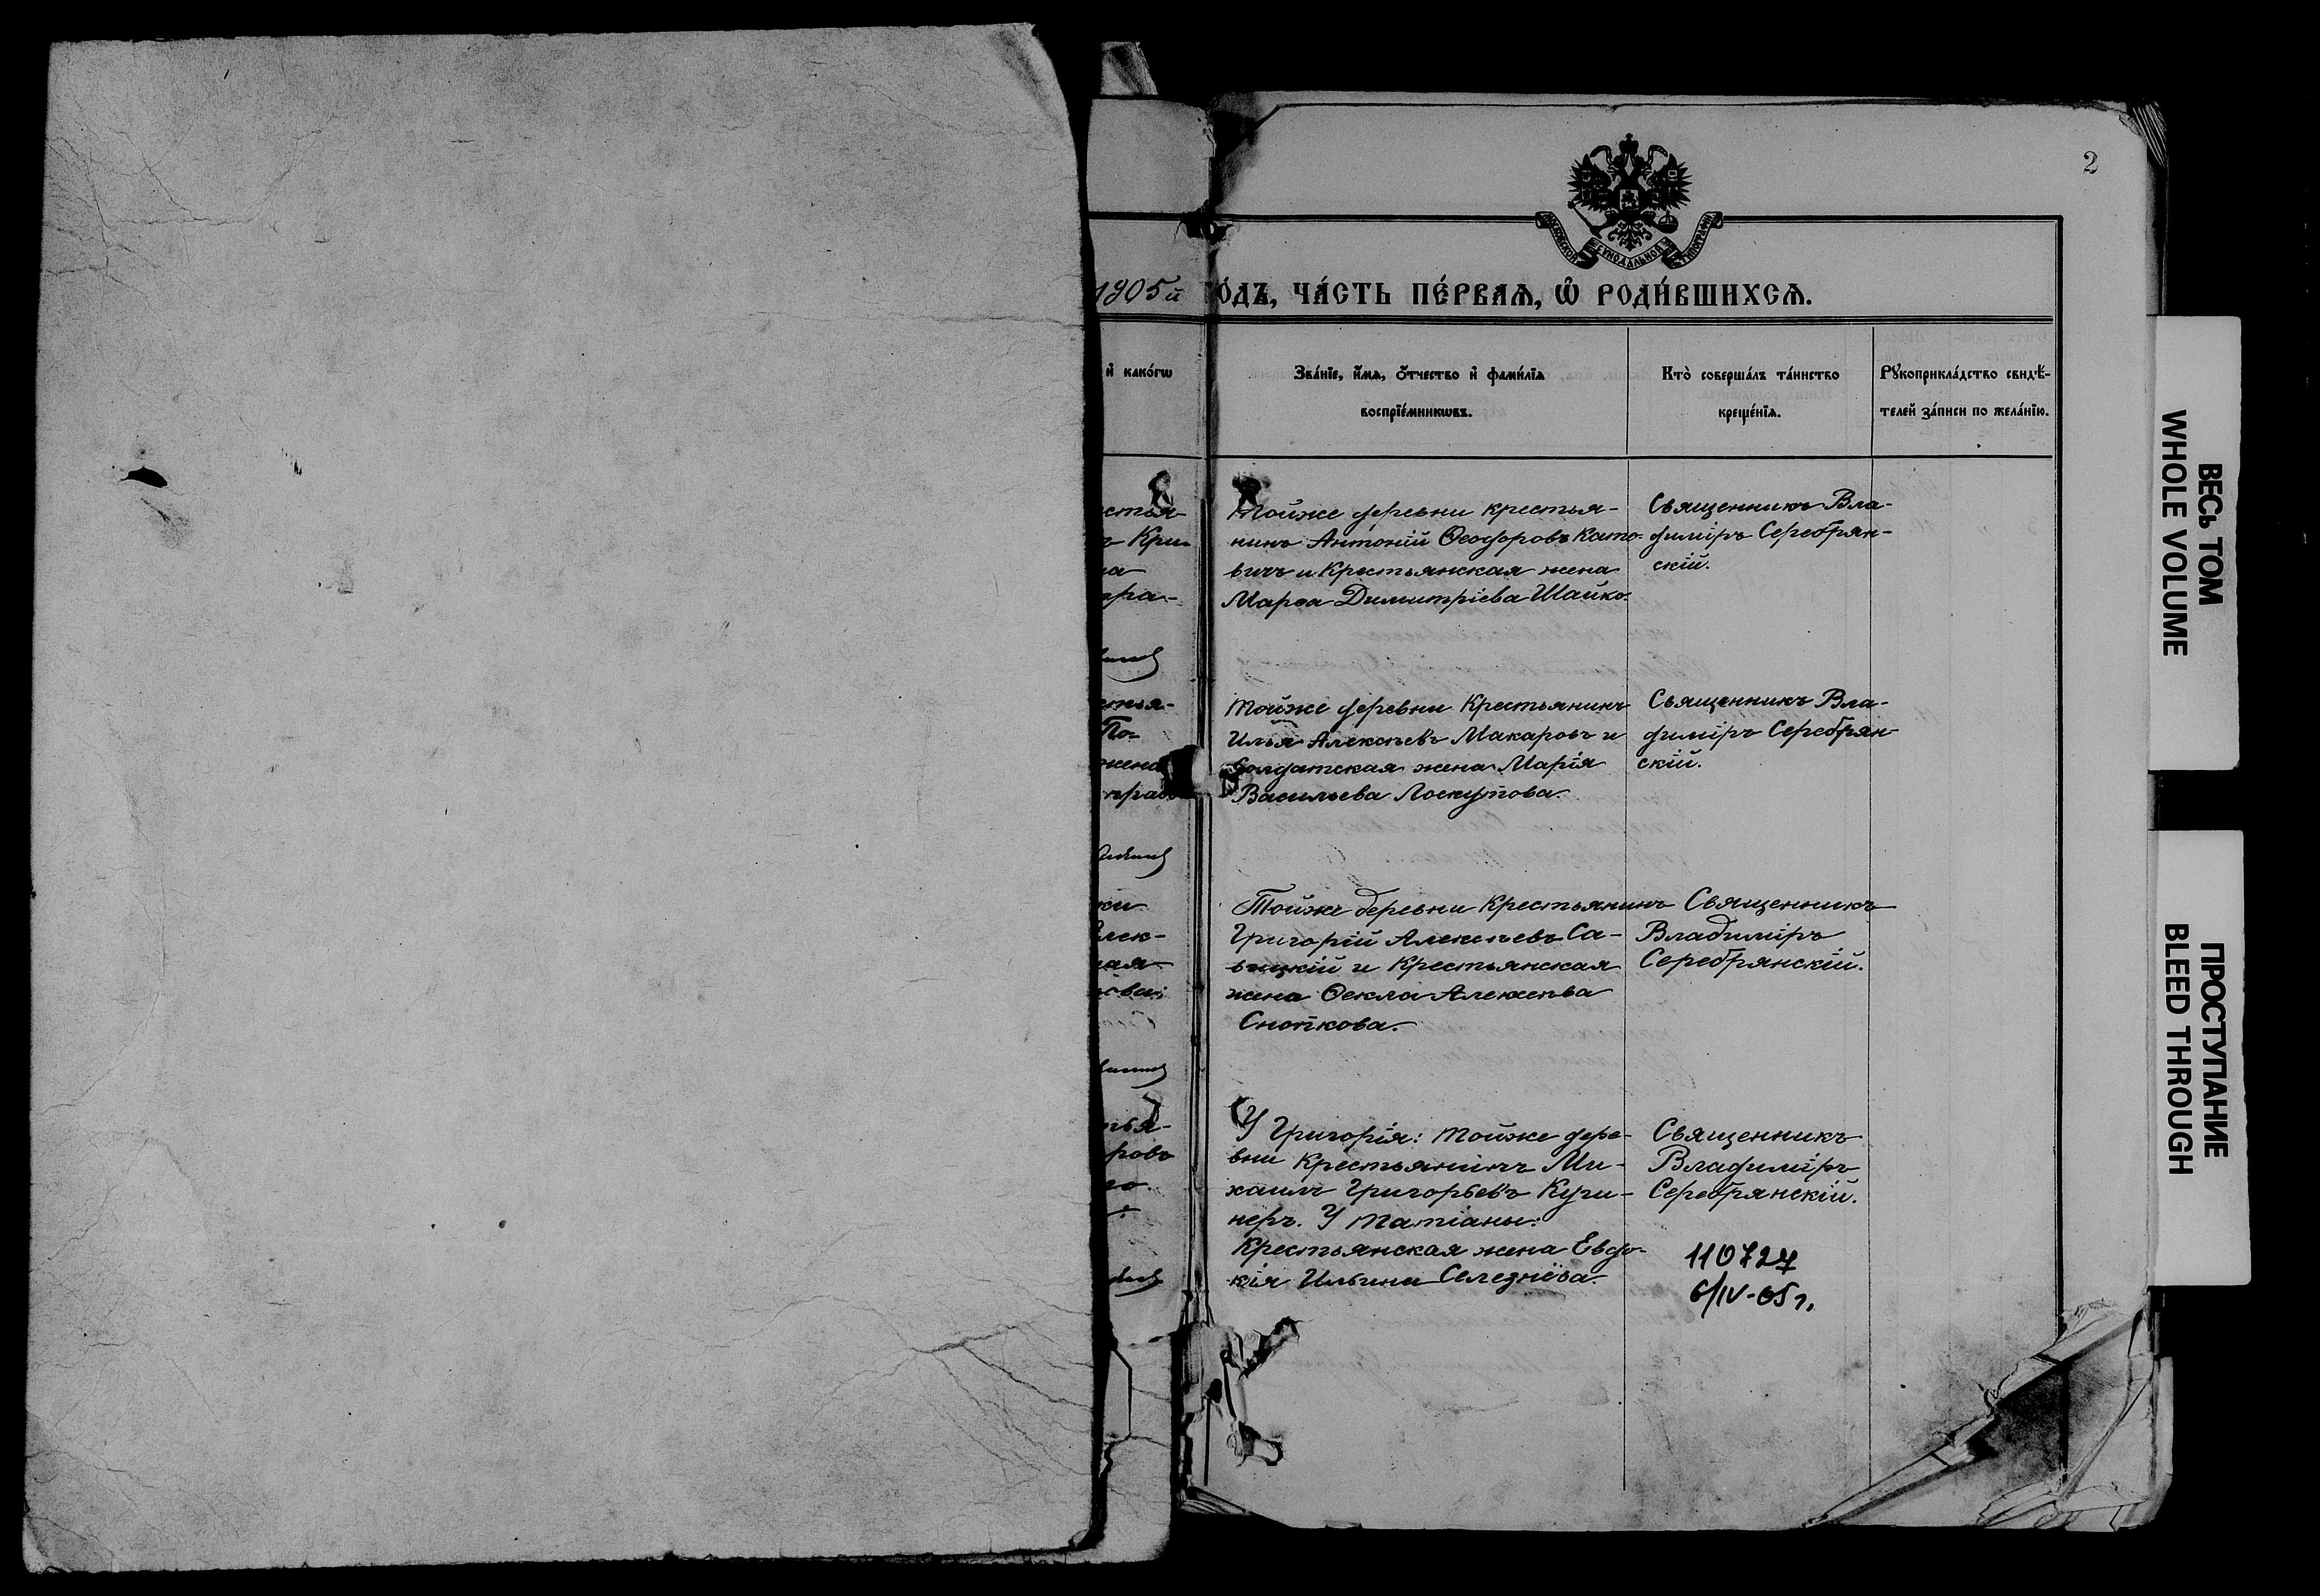 2
МОСКОВСКОЙ СУНОДАЛЬНОЙ ТИПОГРАФІИ
1905й го́дъ, ча́сть пе́рваѧ, ѽ роди́вшихсѧ.
и҆ како́гѡ
Зва́нїе, и҆́мѧ, ѻ҆́тчество и҆ фамѝлїѧ
воспрїе́мникѡвъ.
Кто̀ соверша́лъ та́инство
креще́нїѧ.
Рꙋкоприкла́дство свидѣ́-
телей за́писи по жела́нїю.
Тойже деревни крестья-
нинъ Антоній Ѳеодоровъ Като-
вичъ и Крестьянская жена
Марѳа Димитріева Шайко.
Священникъ Вла-
диміръ Серебрян-
скій.
Тойже деревни Крестьянинъ
Илья Алексѣевъ Макаровъ и
солдатская жена Марія
Васильева Лоскутова.
Священникъ Вла-
диміръ Серебрян
скій.
Тойже деревни Крестьянинъ
Григорій Алексѣевъ Са-
вицкій и Крестьянская
жена Ѳекла Алексѣева
Снопкова.
Священникъ
Владиміръ
Серебрянскій.
У Григорія: тойже дере-
вни Крестьянинъ Ми-
хаилъ Григорьевъ Кучи-
неръ. У Татіаны:
Крестьянская жена Евдо-
кія Ильина Селезнёва.
Священникъ
Владиміръ
Серебрянскій.
110727
6/IV-05 г.
ВЕСЬ ТОМ
WHOLE VOLUME
ПРОСТУПАНИЕ
BLEED THROUGH